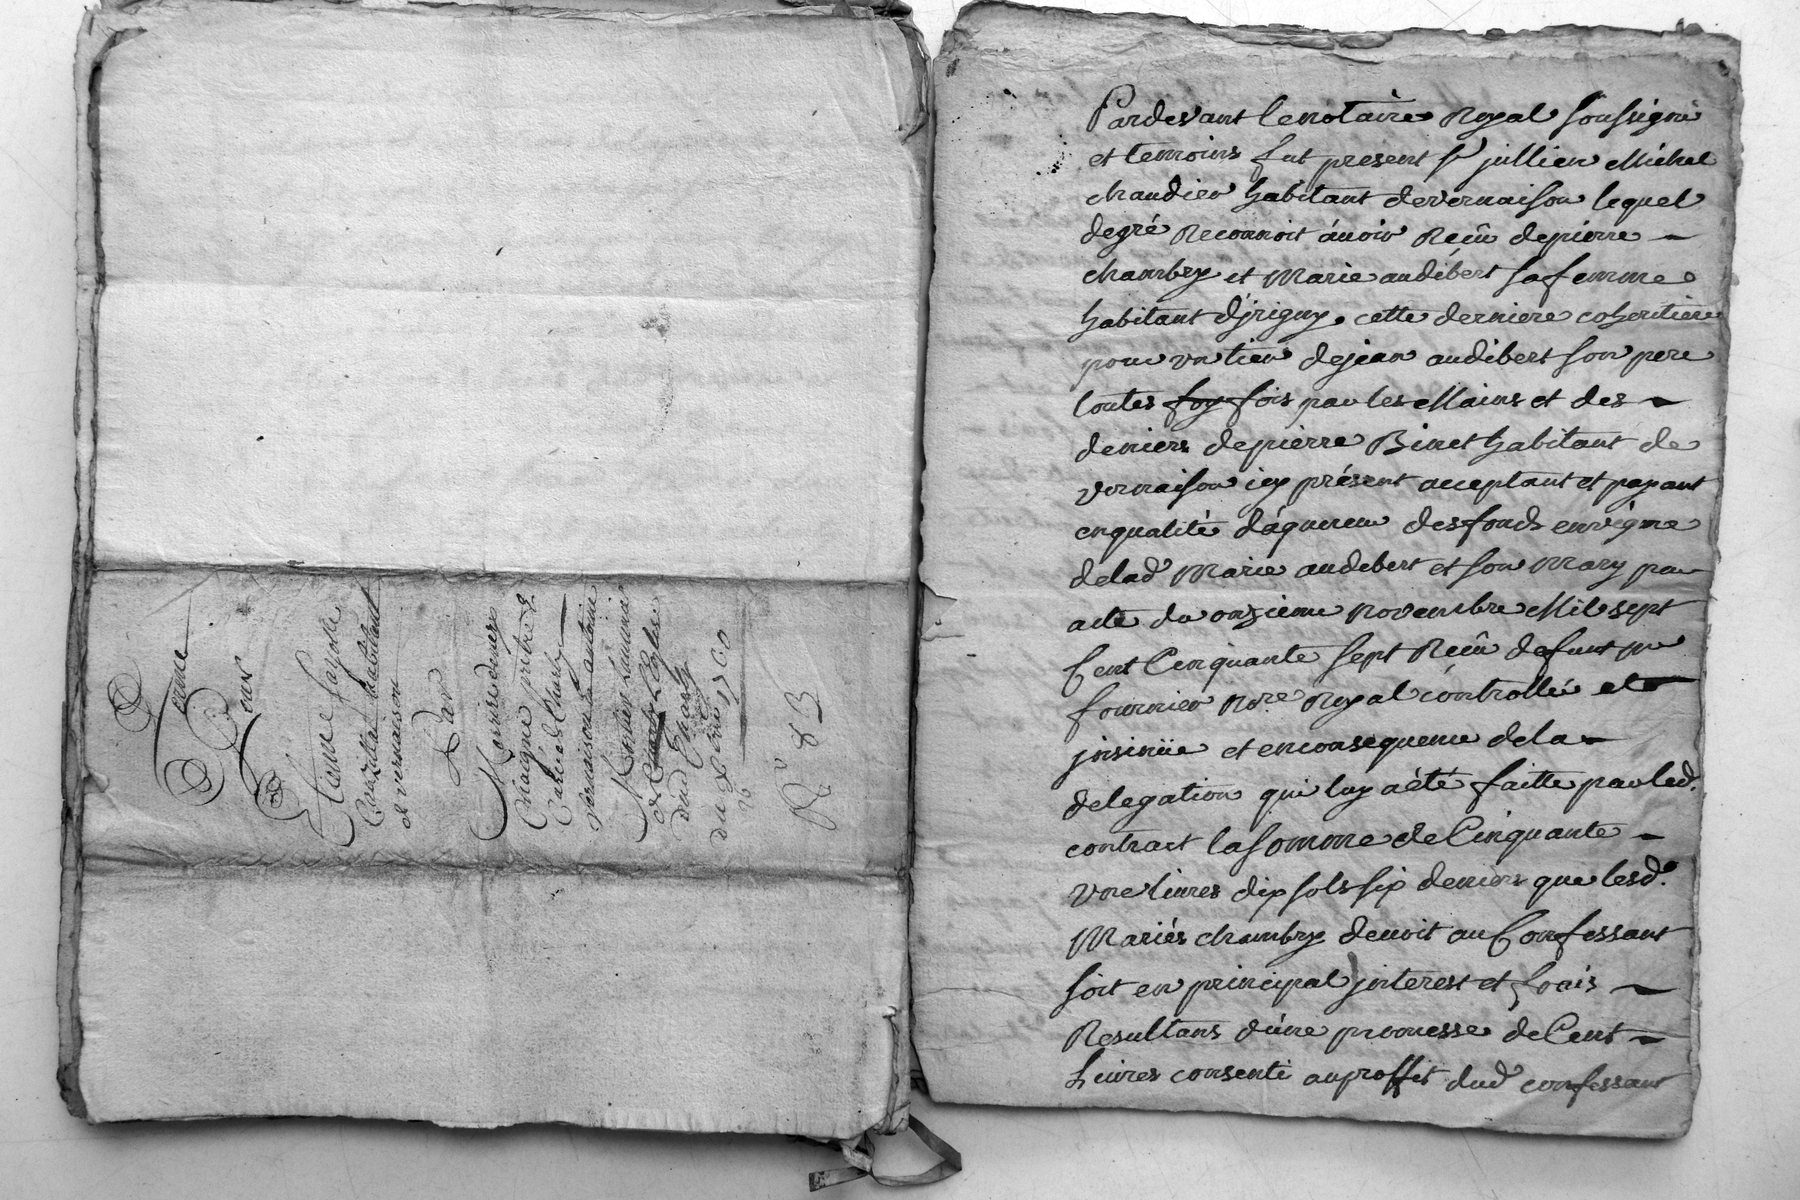 Ferme
Pour
Etienne fayolle
habitant
de vernaison
Par
Messire
prêtre &
Curé de Charly
vernaison &
Mre
de l'Eglise
dud Charly
du 1760
26
Rv 83
Pardevant le notaire Royal soussigné
et temoins fut present sr jullien Michel
chaudier habitant de vernaison lequel
degré Reconnoit ávoir Reçû de pierre
chambry et Marie audibert sa femme
habitant d'jrigny, cette derniere coheritiere
pour un tier de jean audibert son pere
toutes foy fois par les Mains et des
deniers de pierre Binet habitant de
vernaison icy présent acceptant et payant
en qualité d'áquereur des fonds en vigne
de lad Marie audebert et son Mary par
acte du onzieme novembre Mil sept
Cent Cinquante sept Reçû defunt me
fournier Nore Royal controllé et
jnsinüé et en consequence de la
delegation qui luy a été faitte par led.
contract la somme de Cinquante
une livres dix sols six deniers que lesd.
Mariés chambry devoit au Confessant
soit en principal jnterest et frais
Resultans d'une promesse de Cent
Livres consenti au proffit dud confessant